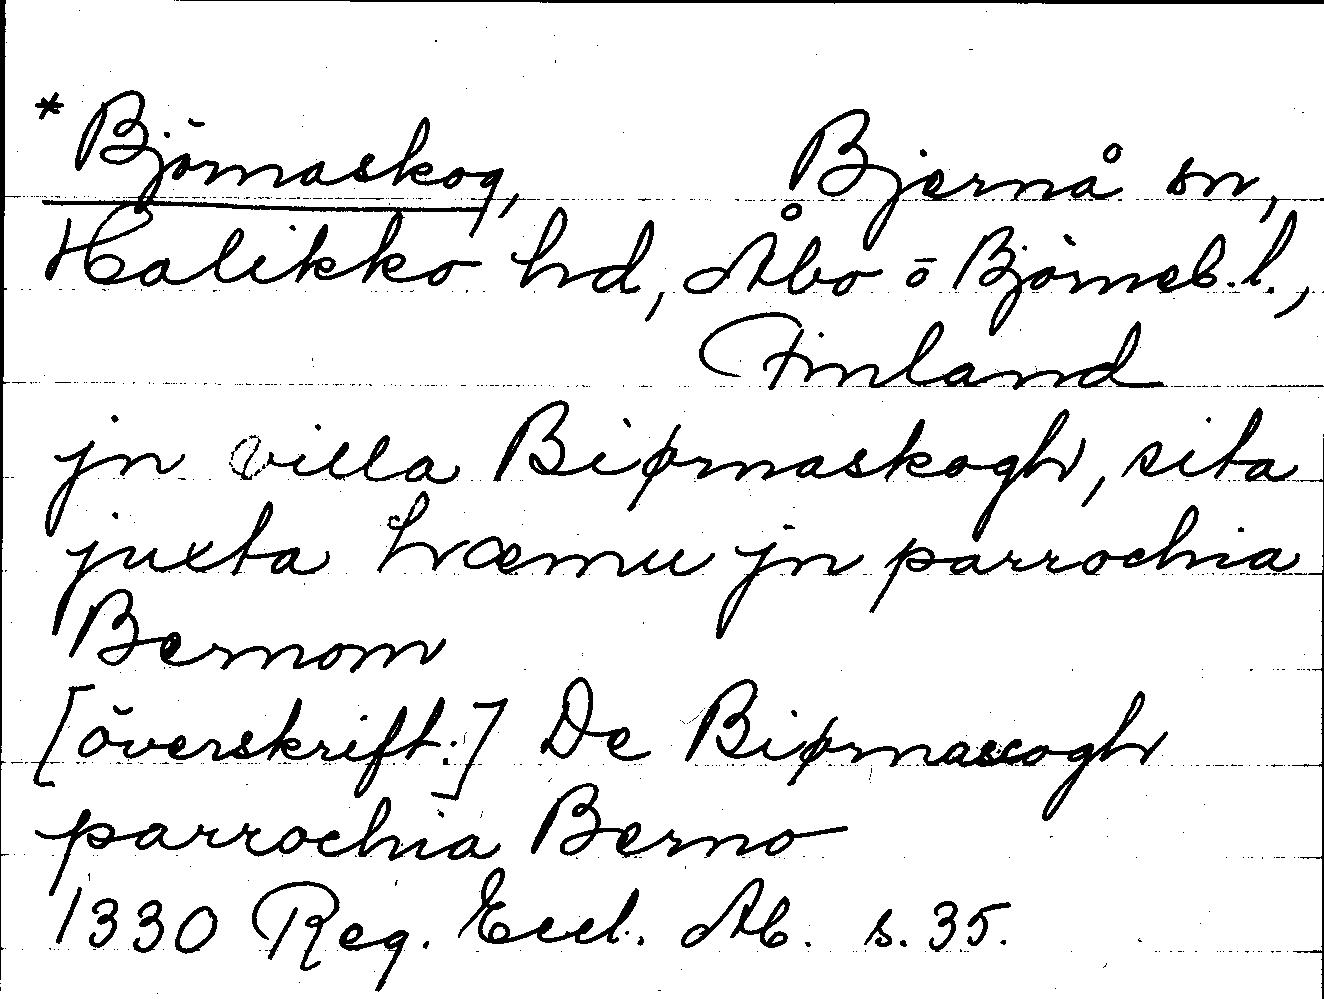 * Björnaskog, Bjernå sn,
Halikko hd, Åbo o Björneb. l.,
Finland
jn villa Biørnaskogh, sita
juxta hræmu jn parrochia
Bernom
[överskrift:] De Biørnascogh
parrochia Berno
1330 Reg. Eccl. Ab. s. 35.